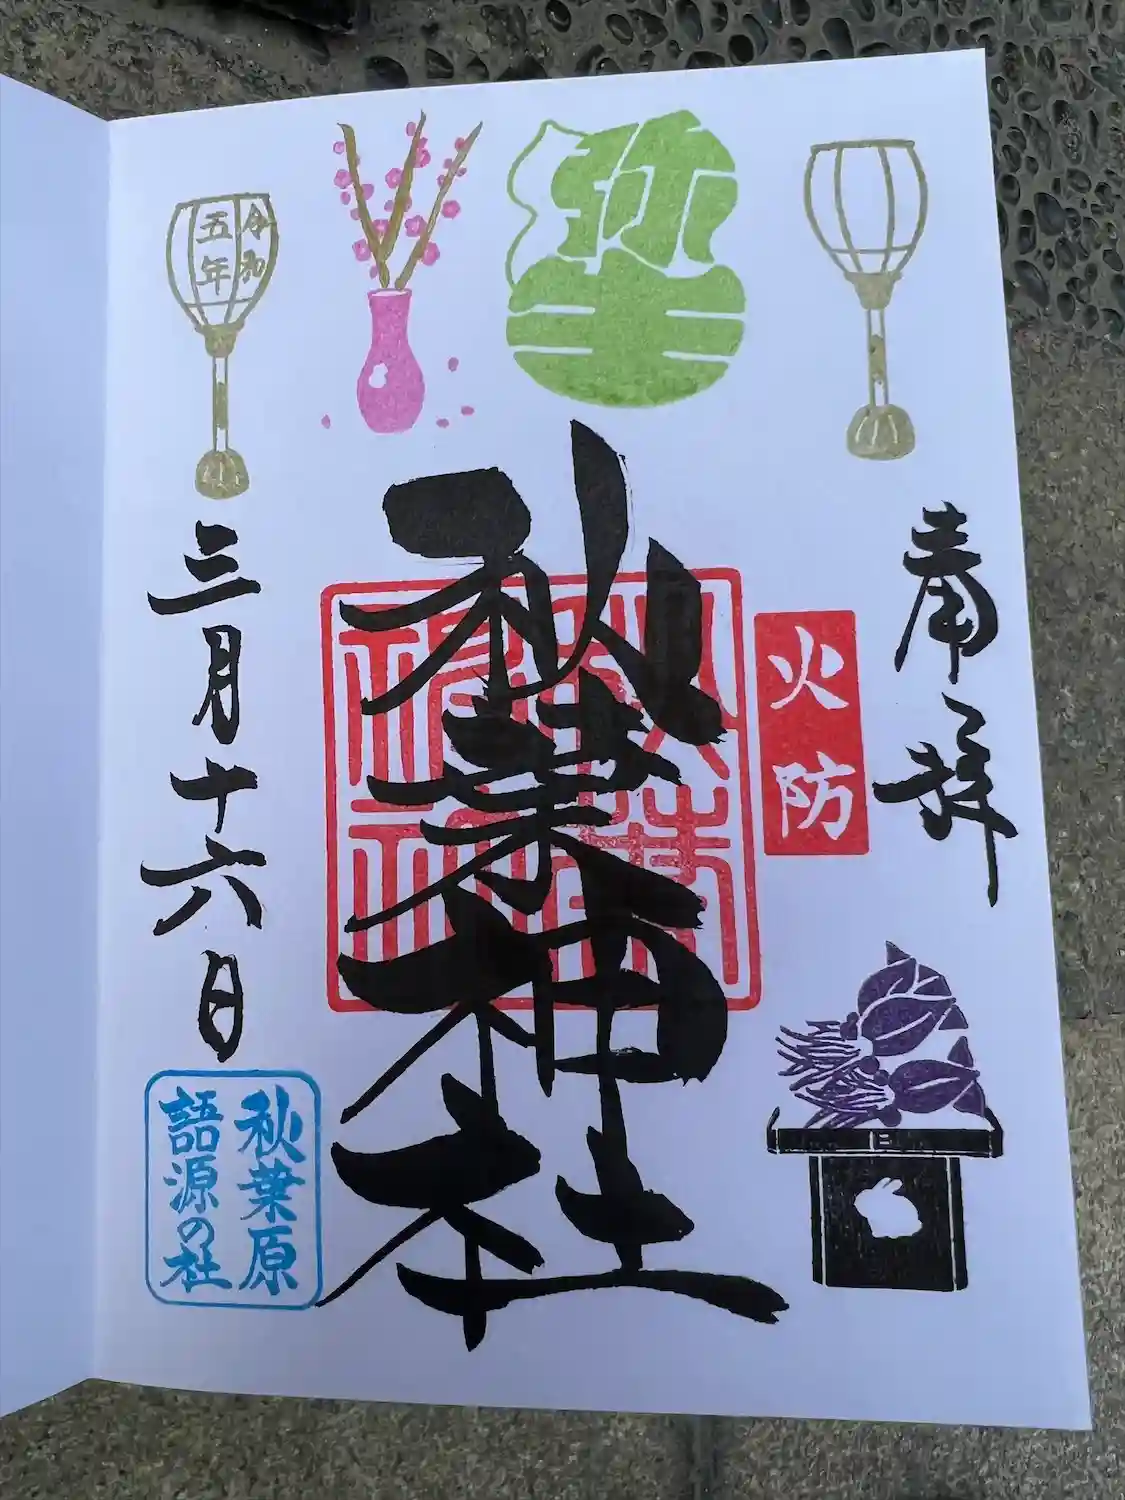 奉拝
火防
弥生
秋葉神社
秋葉
神社
令和
五年
三月十六日
秋葉原
語源の社